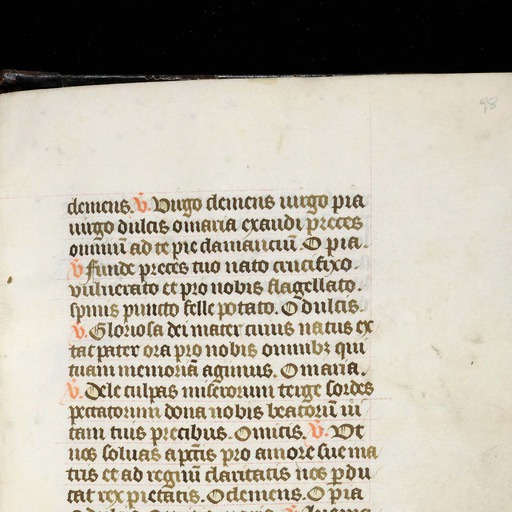 98
clemens. V. Virgo clemens uirgo pia
uirgo dulcis o maria exaudi preces
omniū ad te pie clamanciū. O pia.
V funde preces tuo nato crucifixo.
vulnerato et pro nobis flagellato.
spinis puncto felle potato. O dulcis.
V. Gloriosa dei mater cuius natus ex
tat pater ora pro nobis omnibꝫ qui
tuam memoriā agimus. O maria.
V. Dele culpas miserorum terge sordes
peccatorum dona nobis beatorū ui
tam tuis precibus. O mitis. V. Vt
nos soluas a pctīs pro amore sue ma
tris et ad regnū claritatis nos ꝑdu
cat rex pietatis. O clemens. O pia